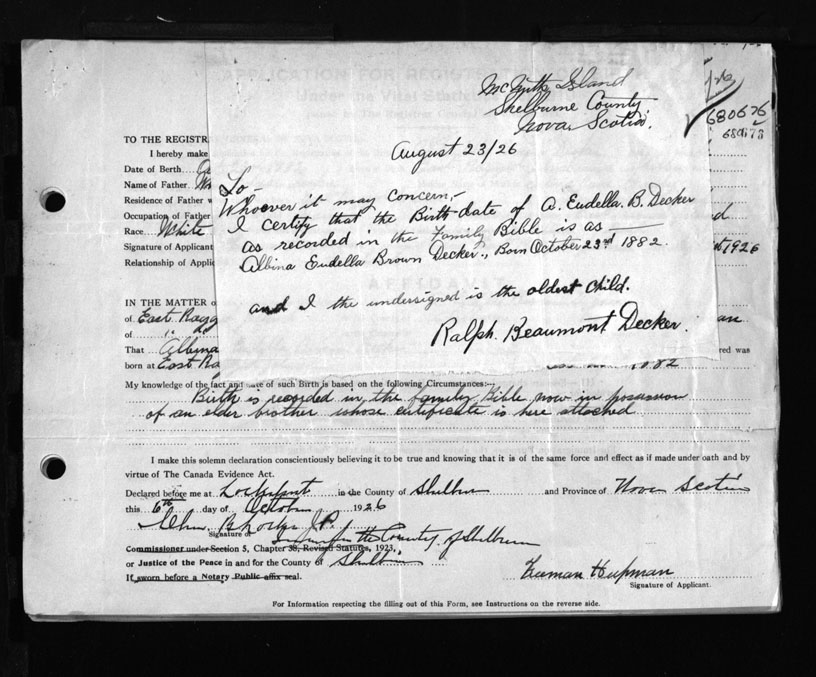 APPLICATION FOR REGISTR
Under the Vital Statistics
McNutts Island
Shelburne County
Nova Scotia.
680676
680673
August 23/26
To-
Whoever it may concern,-
I certify that the Birth date of A. Eudella. B. Decker
as recorded in the Family Bible is as
Albina Eudella Brown Decker., Born October 23rd 1882.
and I the undersigned is the oldest child.
Ralph. Beaumont Decker.
TO THE REGISTR
I hereby make
Date of Birth
Name of Father
Residence of Father
Occupation of Father
Race White
Signature of Applicant
1926
Relationship of Applic
AFFIDAVIT
IN THE MATTER o
of East Ragg
of
That Albina
red was
born at East Ra
1882
My knowledge of the fact and date of such Birth is based on the following Circumstances:—
Birth is recorded in the family Bible now in possession
of an elder brother whose certificate is here attached
I make this solemn declaration conscientiously believing it to be true and knowing that it is of the same force and effect as if made under oath and by
virtue of The Canada Evidence Act.
Declared before me at Lockeport in the County of Shelburne and Province of Nova Scotia
this 6th day of October 1926
J.P.
Signature of
in and for the County of Shelburne
Commissioner under Section 5, Chapter 38, Revised Statutes, 1923,
or Justice of the Peace in and for the County of Shelburne
If sworn before a Notary Public affix seal.
Freeman Hupman
Signature of Applicant.
For Information respecting the filling out of this Form, see Instructions on the reverse side.